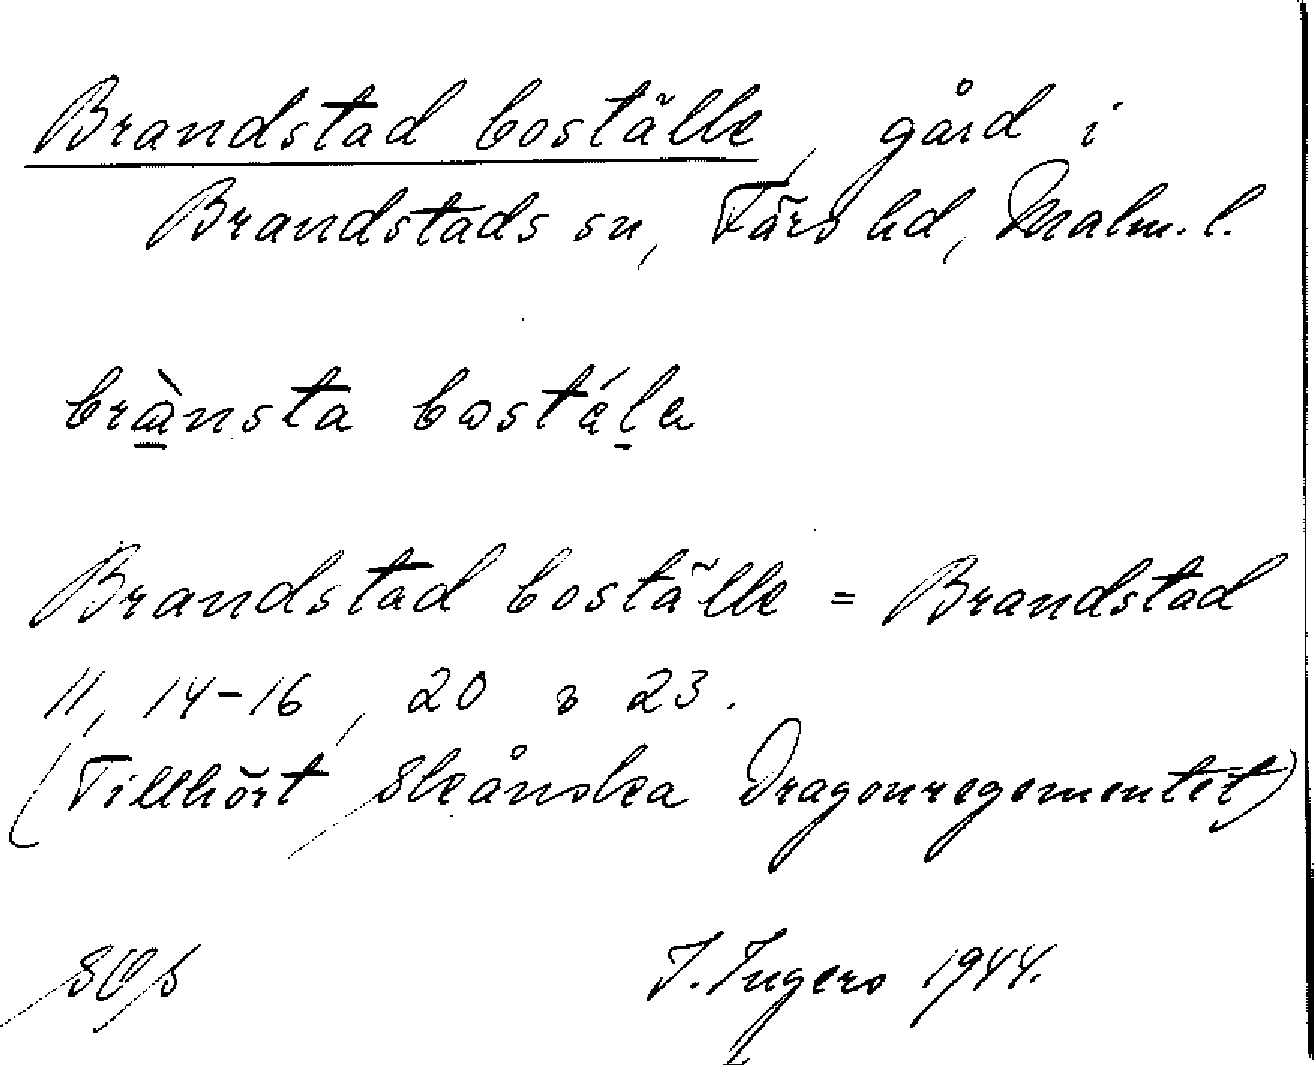 Brandstad boställe, gård i
Brandstads sn, Färs hd, Malm. l.
brànsta bostála
Brandstad boställe = Brandstad
11, 14-16, 20 o 23.
(Tillhört Skånska Dragonregementet)
I. Ingers 1944.